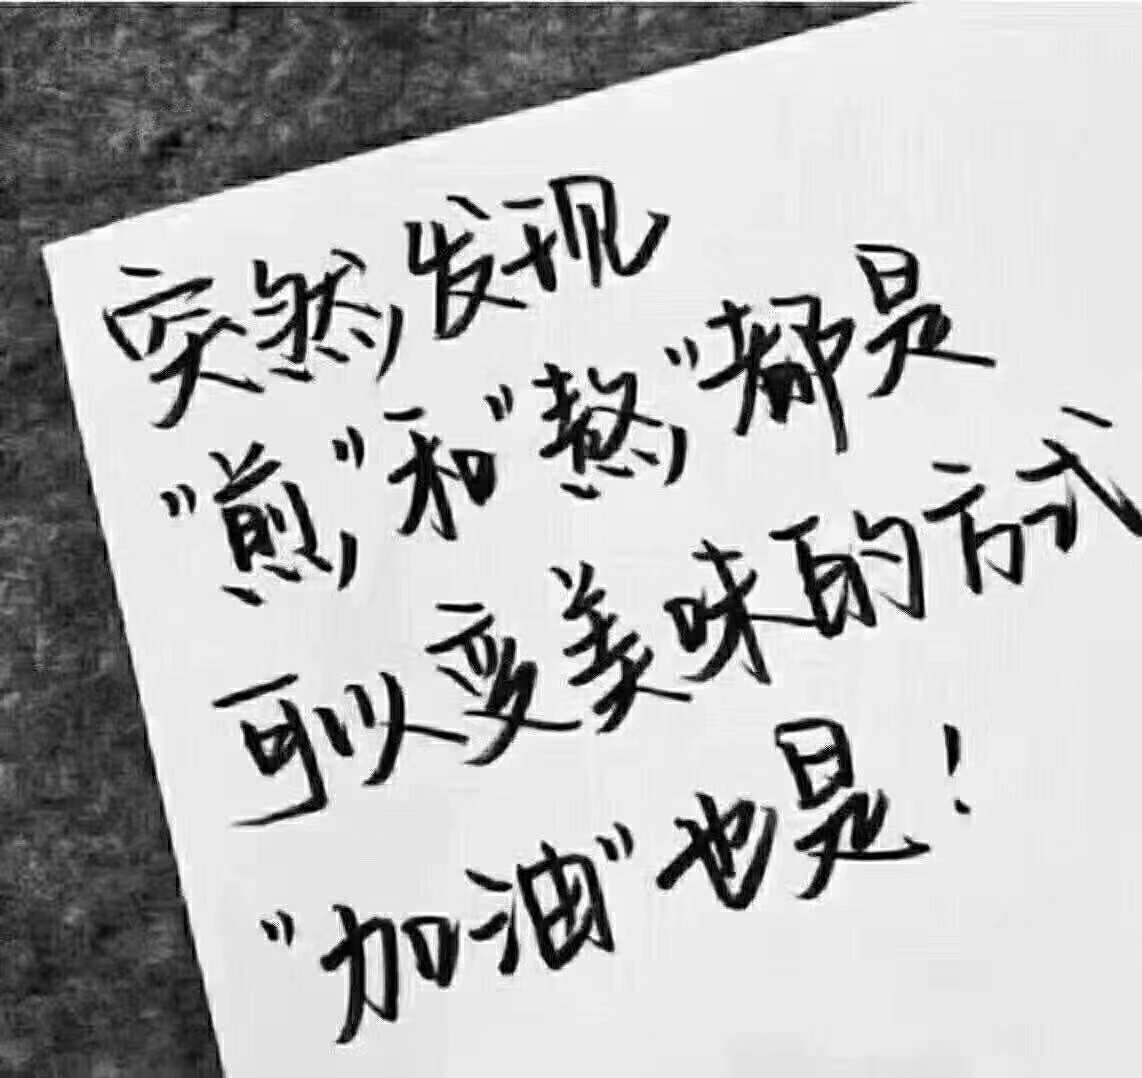 突然发现
"煎"和"熬"都是
可以变美味的方式
"加油"也是!